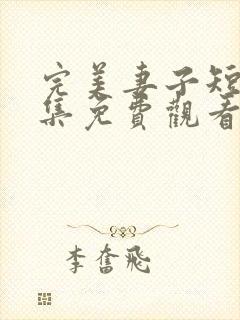 完美妻子短
集免費觀看
李奮飛